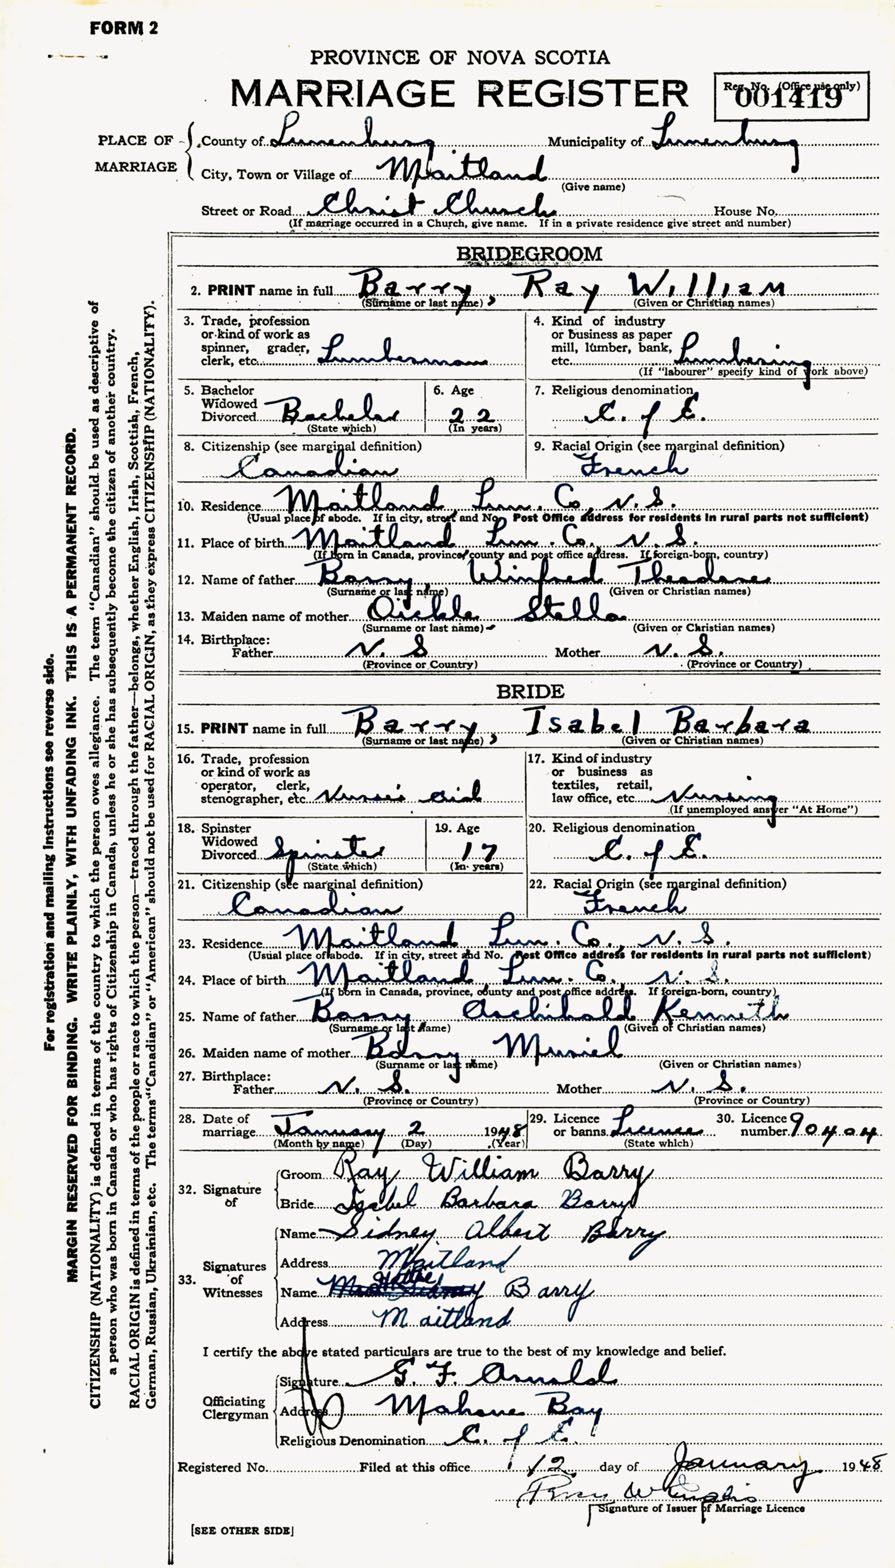 FORM 2
PROVINCE OF NOVA SCOTIA
MARRIAGE REGISTER
Reg. No. (Office use only)
001419
PLACE OF MARRIAGE
County of Lunenburg Municipality of Lunenburg
City, Town or Village of Maitland
(Give name)
Street or Road Christ Church House No.
(If marriage occurred in a Church, give name. If in a private residence give street and number)
BRIDEGROOM
2. PRINT name in full Barry, Ray William
(Surname or last name) (Given or Christian names)
3. Trade, profession or kind of work as spinner, grader, clerk, etc. Lumberman
4. Kind of industry or business as paper mill, lumber, bank, etc. Lumbering
(If "labourer" specify kind of work above)
5. Bachelor Widowed Divorced Bachelor
(State which)
6. Age 22
(In years)
7. Religious denomination C. of E.
8. Citizenship (see marginal definition) Canadian
9. Racial Origin (see marginal definition) French
10. Residence Maitland Lun. Co. N.S.
(Usual place of abode. If in city, street and No. Post Office address for residents in rural parts not sufficient)
11. Place of birth Maitland Lun. Co. N.S.
(If born in Canada, province, county and post office address. If foreign-born, country)
12. Name of father Barry, Winfred Theodore
(Surname or last name) (Given or Christian names)
13. Maiden name of mother Oickle Stella
(Surname or last name) (Given or Christian names)
14. Birthplace:
Father N. S. Mother N. S.
(Province or Country) (Province or Country)
BRIDE
15. PRINT name in full Barry, Isabel Barbara
(Surname or last name) (Given or Christian names)
16. Trade, profession or kind of work as operator, clerk, stenographer, etc. Nurse's aid
17. Kind of industry or business as textiles, retail, law office, etc. Nursing
(If unemployed answer "At Home")
18. Spinster Widowed Divorced Spinster
(State which)
19. Age 17
(In years)
20. Religious denomination C. of E.
21. Citizenship (see marginal definition) Canadian
22. Racial Origin (see marginal definition) French
23. Residence Maitland Lun. Co., N. S.
(Usual place of abode. If in city, street and No. Post Office address for residents in rural parts not sufficient)
24. Place of birth Maitland Lun. Co. N. S.
(If born in Canada, province, county and post office address. If foreign-born, country)
25. Name of father Barry, Archibald Kenneth
(Surname or last name) (Given or Christian names)
26. Maiden name of mother Barry, Muriel
(Surname or last name) (Given or Christian names)
27. Birthplace:
Father N. S. Mother N. S.
(Province or Country) (Province or Country)
28. Date of marriage January 2 1948
(Month by name) (Day) (Year)
29. Licence or banns Licence
(State which)
30. Licence number 90404
32. Signature of
Groom Ray William Barry
Bride Isabel Barbara Barry
33. Signatures of Witnesses
Name Sidney Albert Barry
Address Maitland
Name Hattie Barry
Address Maitland
I certify the above stated particulars are true to the best of my knowledge and belief.
Officiating Clergyman
Signature G. F. Arnold
Address Mahone Bay
Religious Denomination C. of E.
Registered No. Filed at this office 12 day of January 1948
Signature of Issuer of Marriage Licence
[SEE OTHER SIDE]
For registration and mailing instructions see reverse side.
MARGIN RESERVED FOR BINDING. WRITE PLAINLY, WITH UNFADING INK. THIS IS A PERMANENT RECORD.
CITIZENSHIP (NATIONALITY) is defined in terms of the country to which the person owes allegiance. The term "Canadian" should be used as descriptive of
a person who was born in Canada or who has rights of Citizenship in Canada, unless he or she has subsequently become the citizen of another country.
RACIAL ORIGIN is defined in terms of the people or race to which the person—traced through the father—belongs, whether English, Irish, Scottish, French,
German, Russian, Ukrainian, etc. The terms "Canadian" or "American" should not be used for RACIAL ORIGIN, as they express CITIZENSHIP (NATIONALITY).